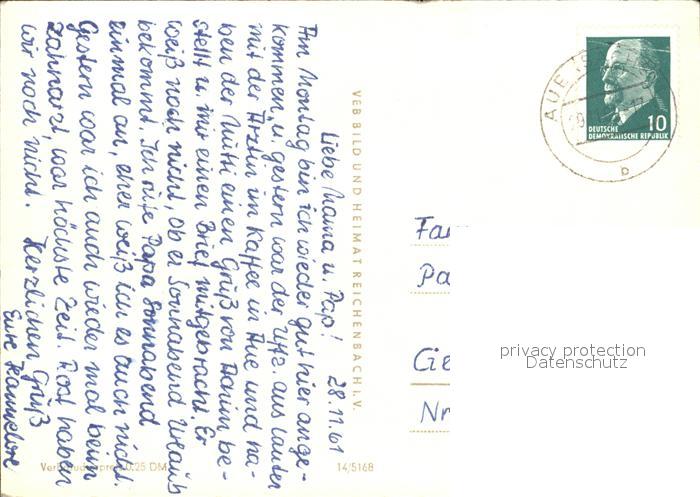 Liebe Mama u. Pap! 28.11.61
Am Montag bin ich wieder gut hier ange-
kommen, u. gestern war der Uffz. aus Lauter
mit der Ärztin im Kaffee in Aue und ha-
ben der Mutti einen Gruß von be-
stellt u. mir einen Brief mitgebracht. Er
weiß noch nicht, ob er Sonnabend Urlaub
bekommt. Ich rufe Papa Sonnabend
einmal an, eher weiß ich es auch nicht.
Gestern war ich auch wieder mal beim
Zahnarzt, war höchste Zeit. Rost haben
wir noch nicht. Herzlichen Gruß
Eure Hannelore
VEB BILD UND HEIMAT REICHENBACH I. V.
14/5168
AUE
DEUTSCHE
DEMOKRATISCHE REPUBLIK
10
b
Fa
Pa
Nr
privacy protection
Datenschutz